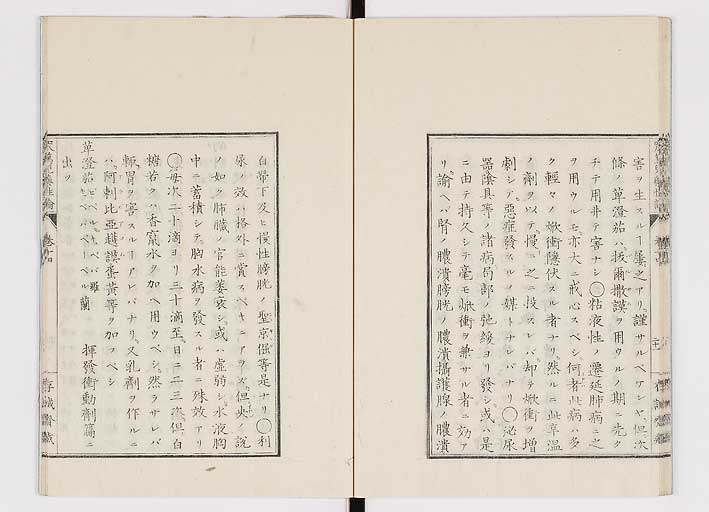 害ヲ生スルヿ屢之アリ謹サルベケンヤ但次
條ノ蓽澄茄ハ拔爾撒謨ヲ用ウルノ期ニ先タ
チテ用井テ害ナシ〇粘液性ノ遷延肺病ニ之
ヲ用ウルモ亦大ニ戒心スベシ何者此病ハ多
ク輕々ノ焮衝隱伏スル者ナリ然ルニ此辛溫
ノ劑ヲ以テ慢ニ之ニ投スレバ却テ焮衝ヲ增
劇シテ惡症發スルノ媒トナレバナリ〇泌尿
器陰具等ノ諸病局部ノ弛緩ヨリ發シ或ハ是
ニ由テ持久シテ毫モ焮衝ヲ兼サル者ニ効ア
リ諭ヘバ腎ノ膿潰膀胱ノ膿潰攝護腺ノ膿潰
白帶下及ヒ慢性膀胱ノ聖京偏等是ナリ〇利
尿ノ效ハ格外ニ賞スベキニアラズ但火ノ說
ノ如ク肺臟ノ官能萎衰シ或ハ虛弱シ水液胸
中ニ蓄積シテ胸水病ヲ發スル者ニ殊效アリ
〇每次二十滴ヨリ三十滴至日ニ二三次但白
糖若クハ香竄水ク加ヘ用ウベシ然ラサレバ
輙胃ヲ害スルヿアレバナリ又乳劑ヲ作ルニ
ハ阿剌比亞護謨蛋黃等ヲ加フベシ
蓽澄茄 羅 蘭 揮發衝動劑篇ニ
出ツ